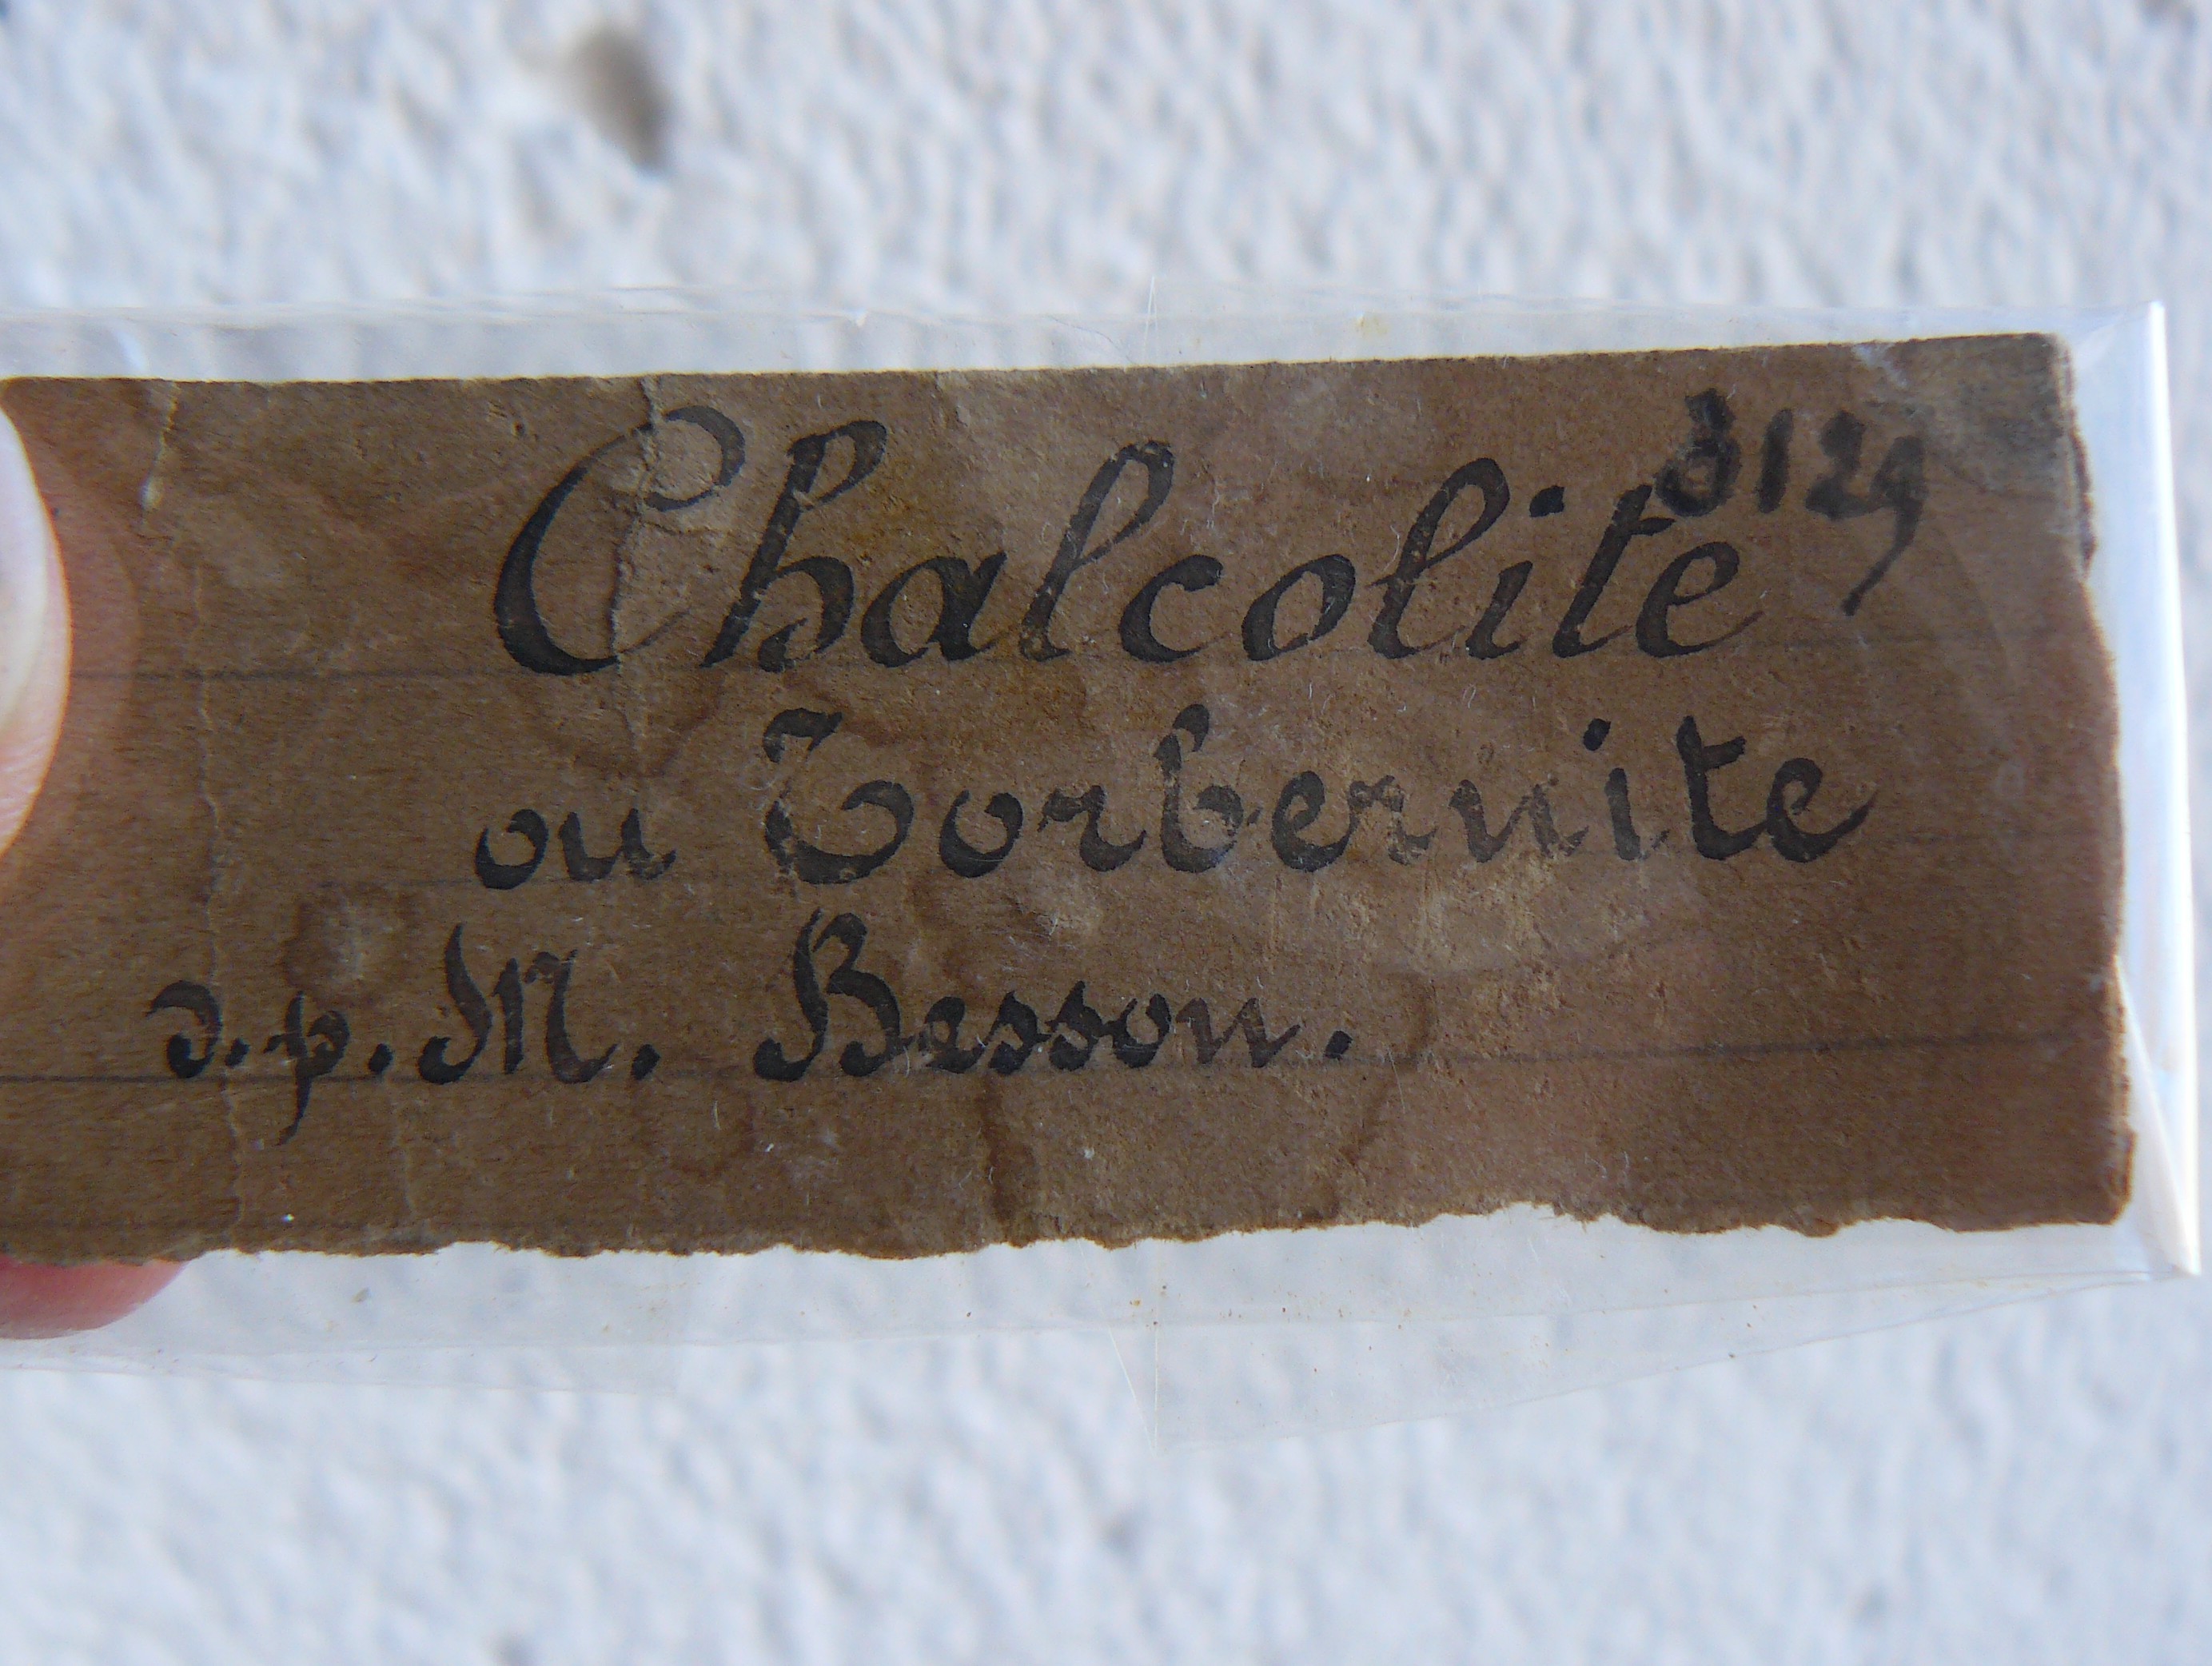 3129
Chalcolite
ou Torbernite
d.p. M. Besson.